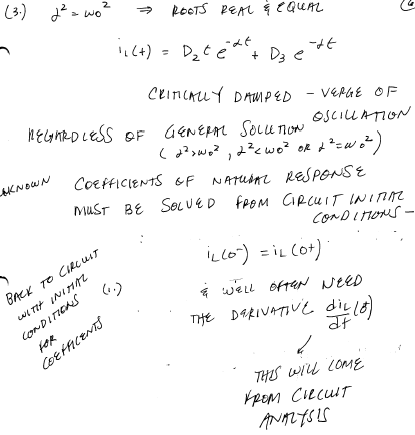 (3.) α² = ω0² ⇒ ROOTS REAL & EQUAL
iL(t) = D2 t e^-αt + D3 e^-αt
CRITICALLY DAMPED - VERGE OF
OSCILLATION
REGARDLESS OF GENERAL SOLUTION
( α²>ω0² , α²<ω0² OR α²=ω0² )
KNOWN COEFFICIENTS OF NATURAL RESPONSE
MUST BE SOLVED FROM CIRCUIT INITIAL
CONDITIONS -
iL(0-) = iL(0+)
BACK TO CIRCUIT
WITH INITIAL
CONDITIONS
FOR
COEFFICIENTS
(1.)
& WE'LL OFTEN NEED
THE DERIVATIVE diL/dt (0)
THIS WILL COME
FROM CIRCUIT
ANALYSIS